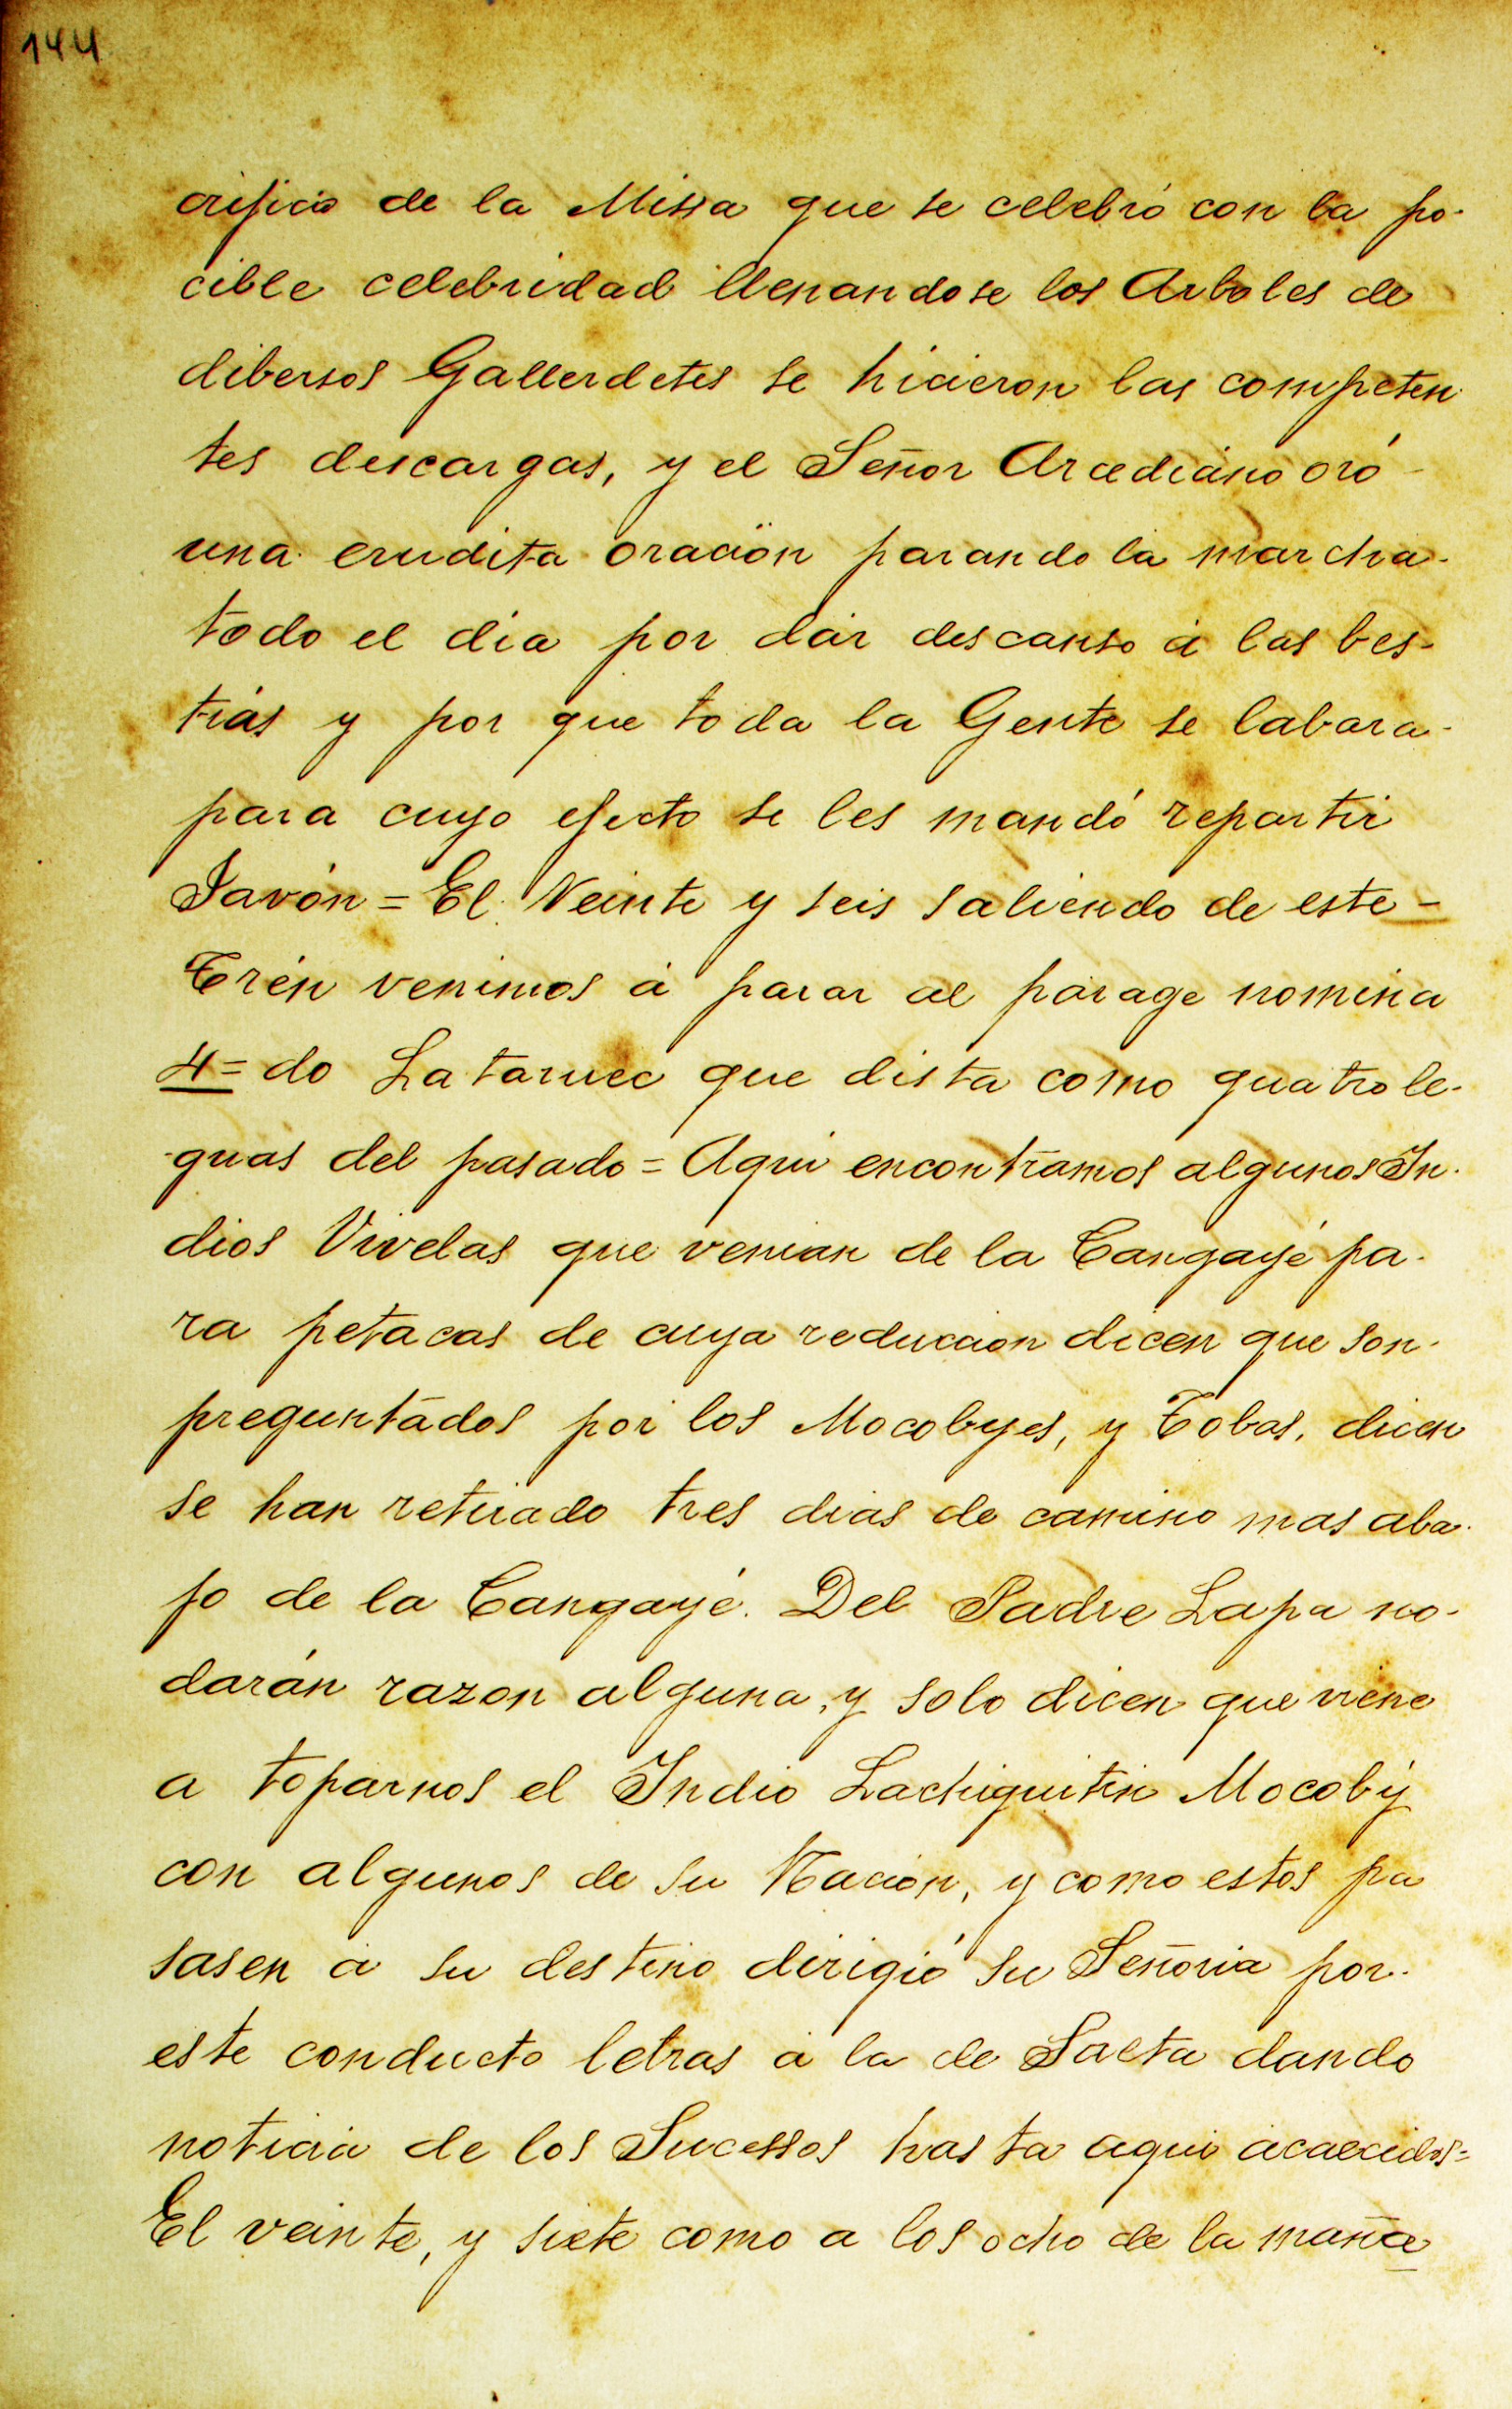 144
crificio de la Missa que se celebró con la po-
cible celebridad llenandose los Arboles de
dibersos Gallerdetes se hicieron las competen
tes descargas, y el Señor Arcediáno oró
una erudita oración parando la marcha-
todo el dia por dár descanso á las bes-
tiás y por que toda la Gente se labara-
para cuyo efecto se les mandó repartir
Javón = El Veinte y seis saliendo de este -
Trén venimos á parar al parage nomina
4= do Lataruec que dista como quatro le-
guas del pasado = Aqui encontramos algunos In-
dios Vivelas que venian de la Cangayé pa-
ra petacas de cuya reduccion dicen que son-
preguntádos por los Mocobyes, y Tobas, dicen
se han retirado tres dias de camino mas aba-
jo de la Cangayé. Del Padre Lapa no-
darán razon alguna, y solo dicen que viene
a toparnos el Indio Lachiquitin Mocobý
con algunos de su Nación, y como estos pa
sasen á su destino dirigió su Señoria por-
este conducto letras á la de Salta dando
noticia de los Sucessos hasta aqui acaecidos=
El veinte, y siete como a los ocho de la mañæ